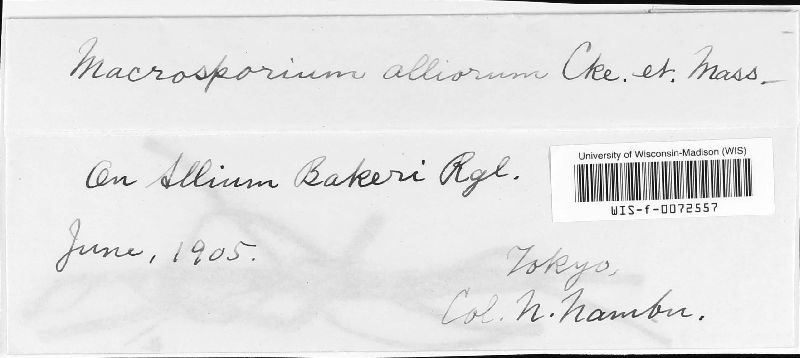 Macrosporium alliorum Cke. et. Mass.
On Allium Bakeri Rgl.
University of Wisconsin-Madison (WIS)
WIS-f-0072557
June, 1905.
Tokyo,
Col. N. Nambu.